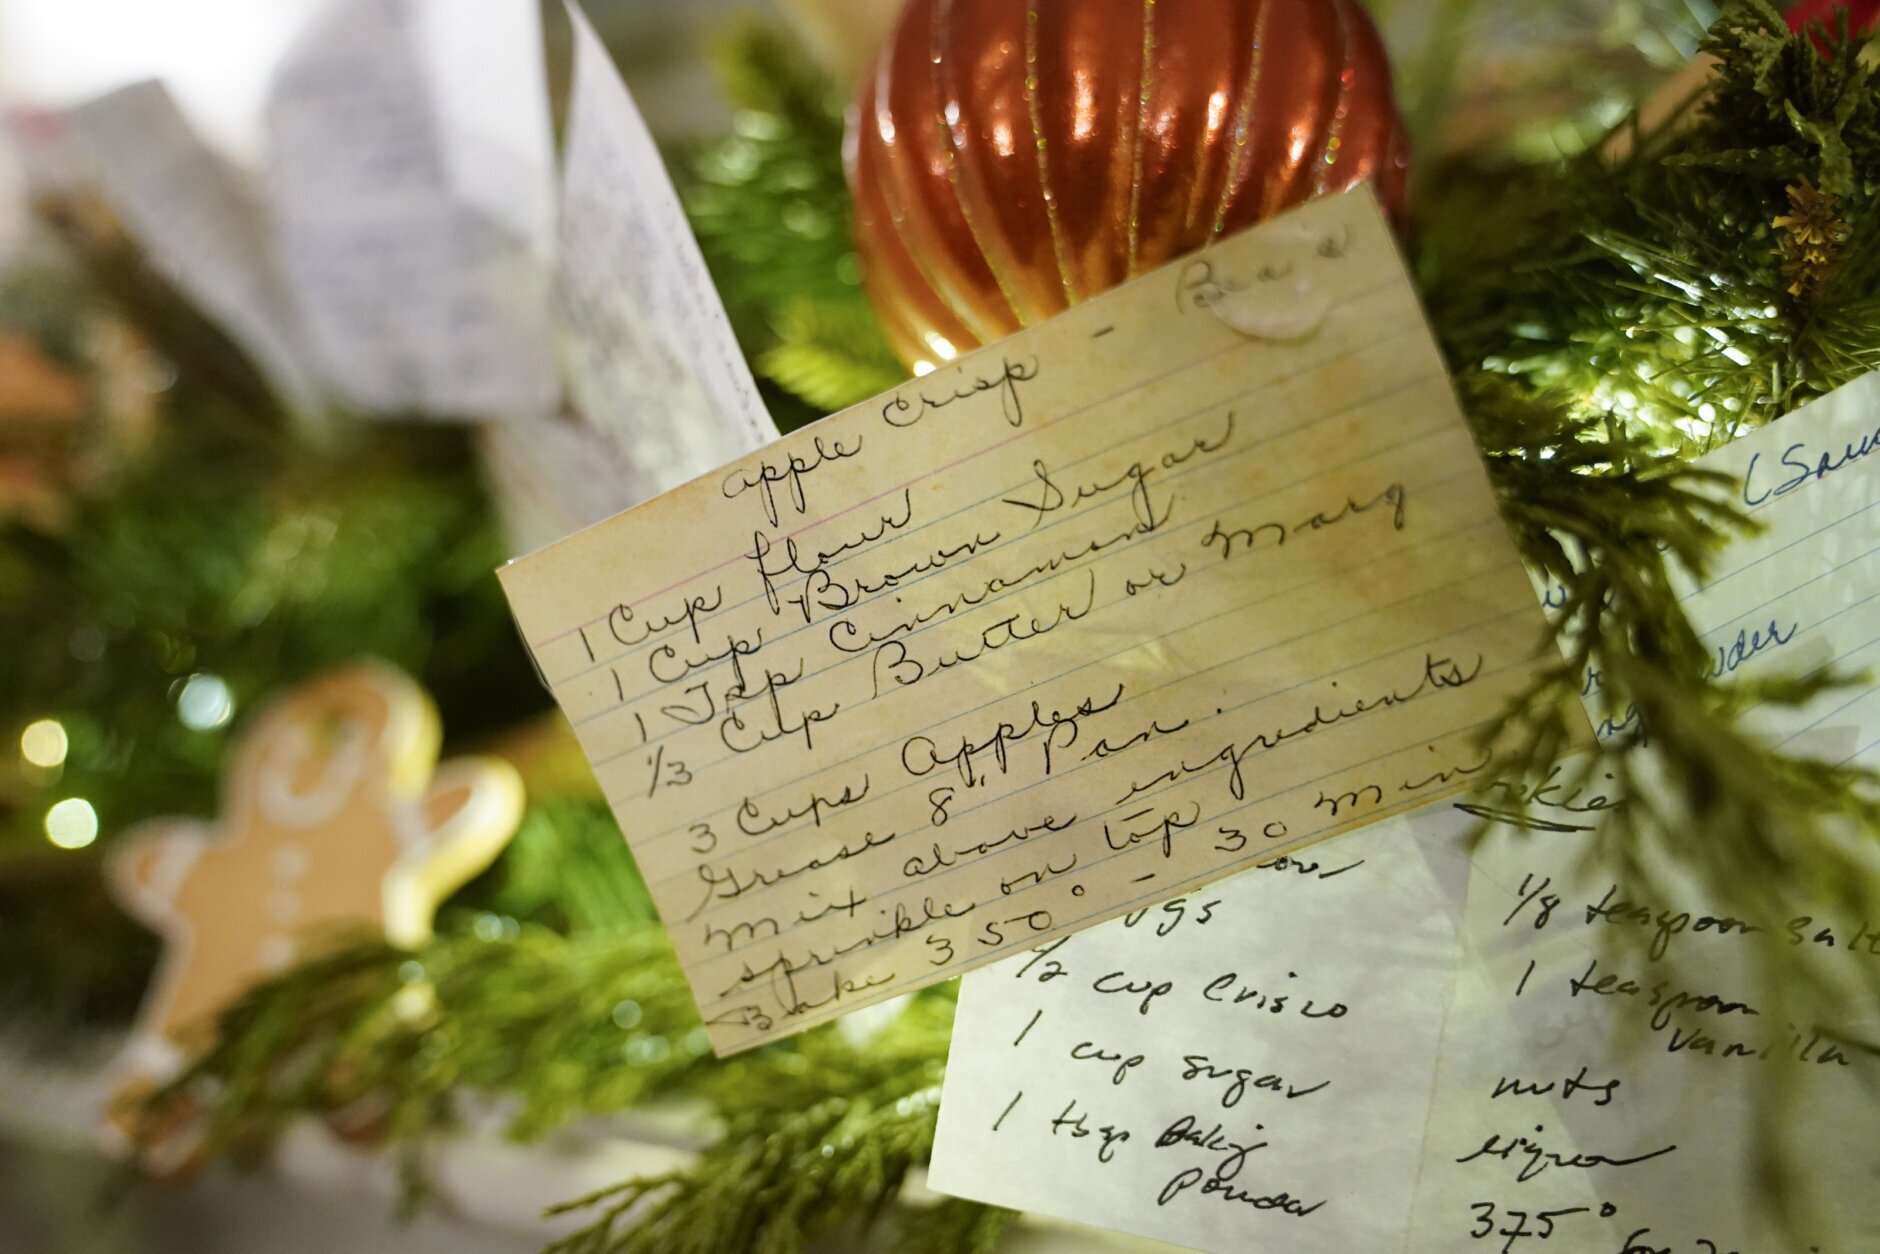 apple Crisp - Bea's
1 Cup flour
1 Cup Brown Sugar
1 Tsp Cinnamon
1/3 Cup Butter or Marg
3 Cups Apples
Grease 8" Pan.
Mix above ingredients
sprinkle on top
Bake 350° - 30 min
1/2 cup Crisco
1 cup sugar
1 tbsp Baking
Powder
1/8 teaspoon salt
1 teaspoon
Vanilla
nuts
375°